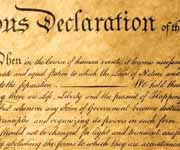 ous Declaration of th
hen in the Course of human events, it becomes necessar
rate and equal station to which the Laws of Nature and
to the separation. We hold thes
are Life, Liberty and the pursuit of Happin
whenever any Form of Government becomes
principles and organizing its powers in such form
should not be changed for light and transient cause
by abolishing the forms to which they are accustomed